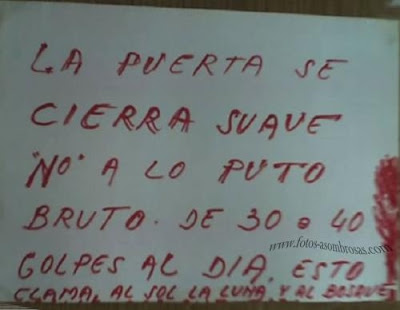 LA PUERTA SE
CIERRA SUAVE
"NO" A LO PUTO
BRUTO. DE 30 o 40
www.fotos-asombrosas.com
GOLPES AL DIA. ESTO
CLAMA, AL SOL LA LUNA. Y AL BOSQUE